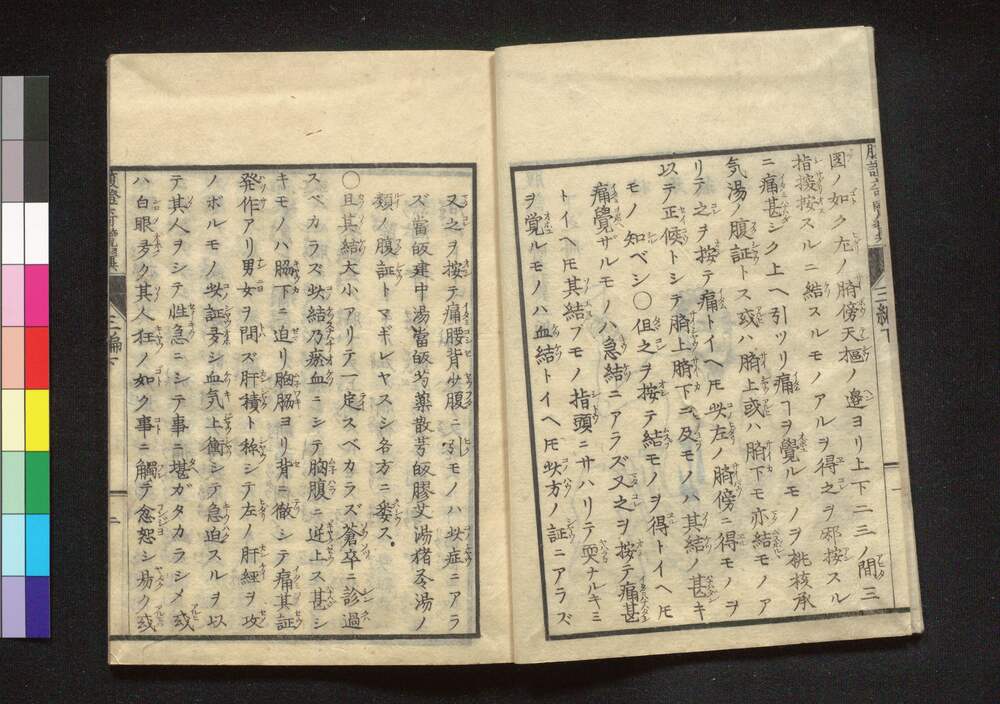 図ノ如ク左ノ臍傍天樞ノ邉ヨリ上下二三ノ間三
指按スルニ結スルモノアルヲ得之ヲ邪按スル
ニ痛甚シク上ヘ引ツリ痛ヿヲ覺ルモノヲ桃核承
気湯ノ腹証トス或ハ臍上或ハ臍下モ亦結モノア
リテ之ヲ按テ痛トイヘ𪜈此左ノ臍傍ニ得モノヲ
以テ正候トシテ臍上臍下ニ及モノハ其結ノ甚キ
モノト知ベシ〇但之ヲ按テ結モノヲ得トイヘ𪜈
痛覺ザルモノハ急結ニアラズ又之ヲ按テ痛甚
トイヘ𪜈其結ブモノ指頭ニサハリテ耎ナルキミ
ヲ覚ルモノハ血結トイヘ𪜈此方ノ証ニアラズ
又之ヲ按テ痛腰背少腹ニ引モノハ此症ニアラ
ズ當皈建中湯當皈芍薬散芎皈膠艾湯猪苓湯ノ
類ノ腹証トマギレヤスシ名方ニ委ス
〇且其結大小アリテ一定スベカラズ蒼卒ニ診過
スベカラズ此結乃瘀血ニシテ胸腹ニ逆上ス甚シ
キモノハ脇下ニ迫リ胸脇ヨリ背ニ徹シテ痛其証
發作アリ男女ヲ問ズ肝積ト称シテ左ノ肝経ヲ攻
ノボルモノ此証多シ血気上衝シテ急迫スルヲ以
テ其人ヲシテ性急ニシテ事ニ堪ガタカラシメ或
ハ白眼多ク其人狂ノ如ク事ニ觸テ忿怒シ易ク或
三編下
二